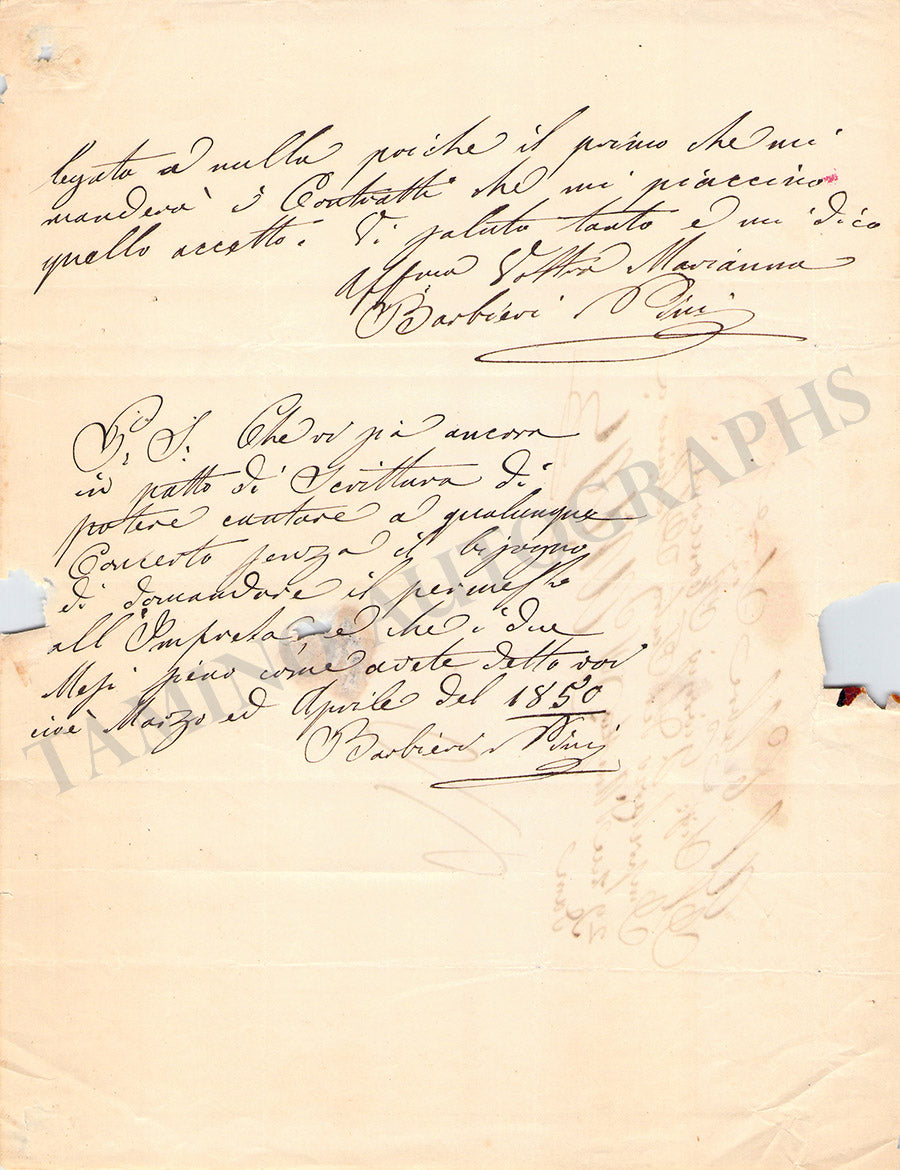 legata a nulla poiche il primo che mi
manderà i Contratti che mi piaccino
quello accetto. Vi saluto tanto e mi dico
Affma Vostra Marianna
Barbieri Nini
P. S. Che vi sia ancora
in patto di Scrittura di
potere cantare a qualunque
Concerto senza il bisogno
di domandare il permesso
all'Impresa e che i due
Mesi sieno come avete detto voi
cioè Marzo ed Aprile del 1850
Barbieri Nini
TAMINO AUTOGRAPHS